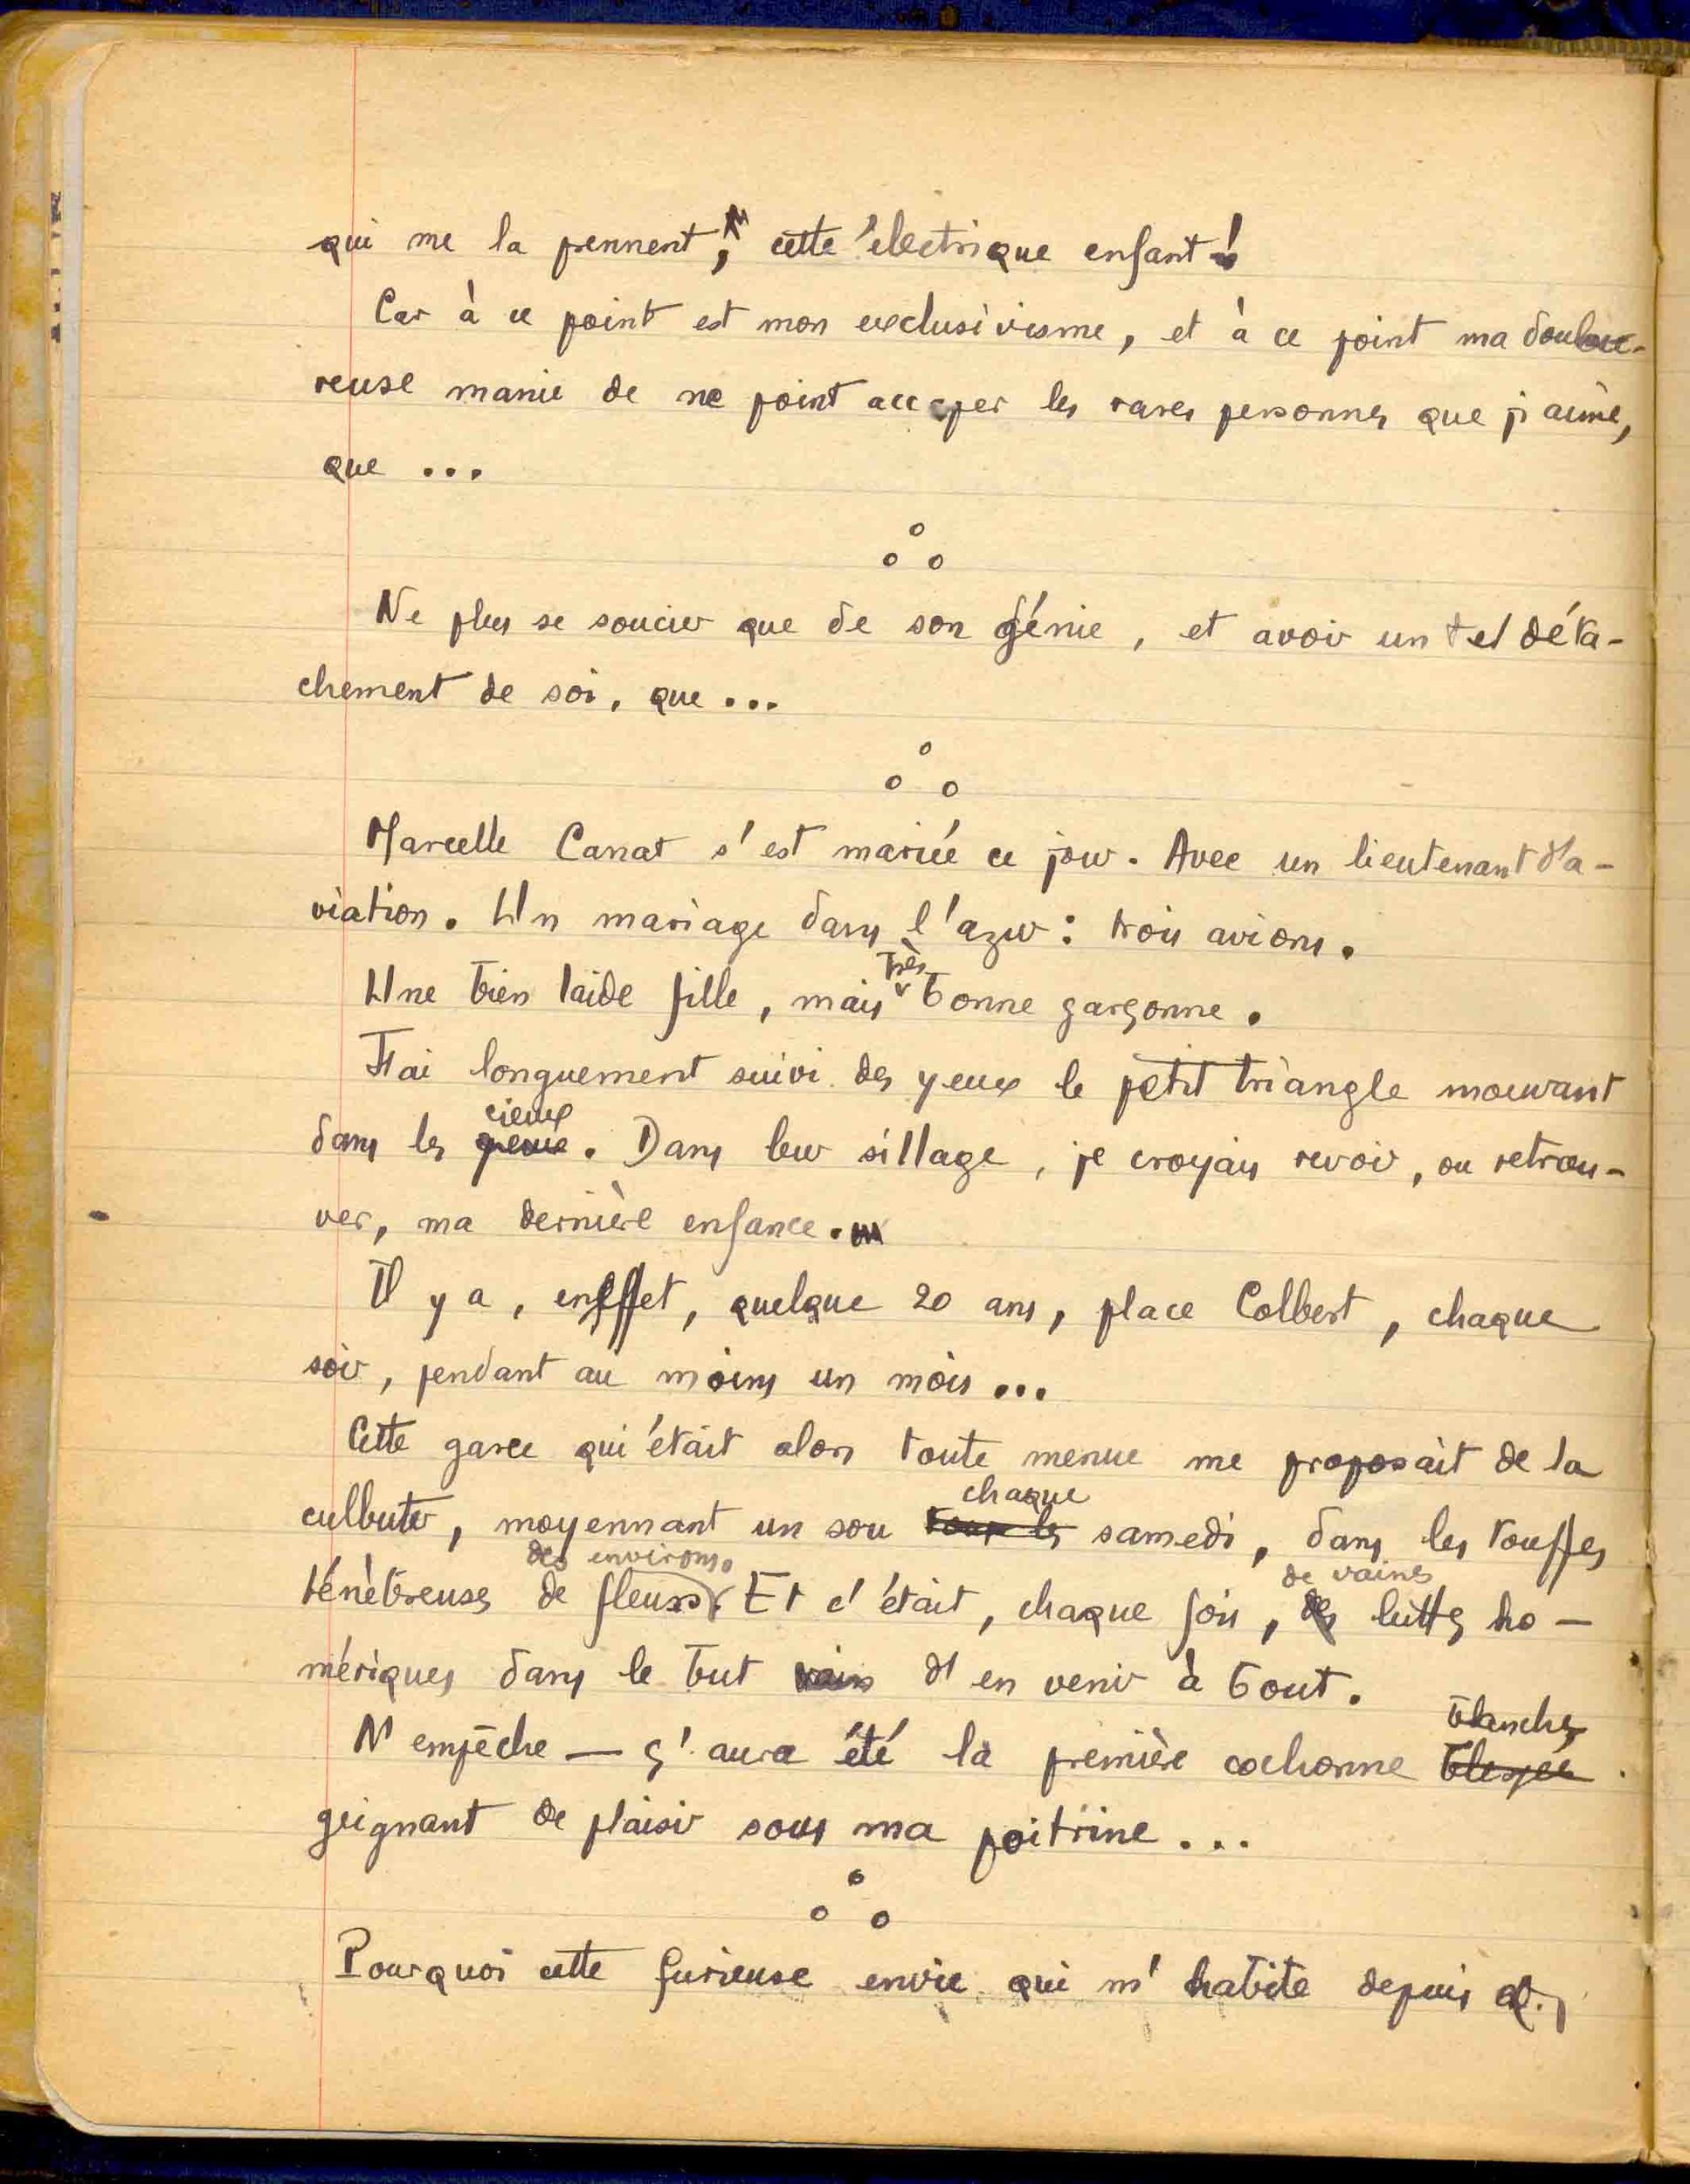 qui me la prennent, cette électrique enfant !
Car à ce point est mon exclusivisme, et à ce point ma doulou-
reuse manie de ne point accaper les rares personnes que j'aime,
que ...
Ne plus se soucier que de son génie, et avoir un tel déta-
chement de soi, que ...
Marcelle Canat s'est mariée ce jour. Avec un lieutenant d'a-
viation. Un mariage dans l'azur : trois avions.
Une bien laide fille, mais très bonne garçonne.
J'ai longuement suivi des yeux le petit triangle mouvant
dans les cieux. Dans leur sillage, je croyais revoir, ou retrou-
ver, ma dernière enfance.
Il y a, en effet, quelque 20 ans, place Colbert, chaque
soir, pendant au moins un mois ...
Cette garce qui était alors toute menue me proposait de la
culbuter, moyennant un sou chaque samedi, dans les touffes
ténèbreuses de fleurs des environs. Et c'était, chaque fois, de vaines luttes ho-
mériques dans le but d'en venir à bout.
N'empêche — ç'aura été la première cochonne blanche
geignant de plaisir sous ma poitrine ...
Pourquoi cette furieuse envie qui m'habite depuis